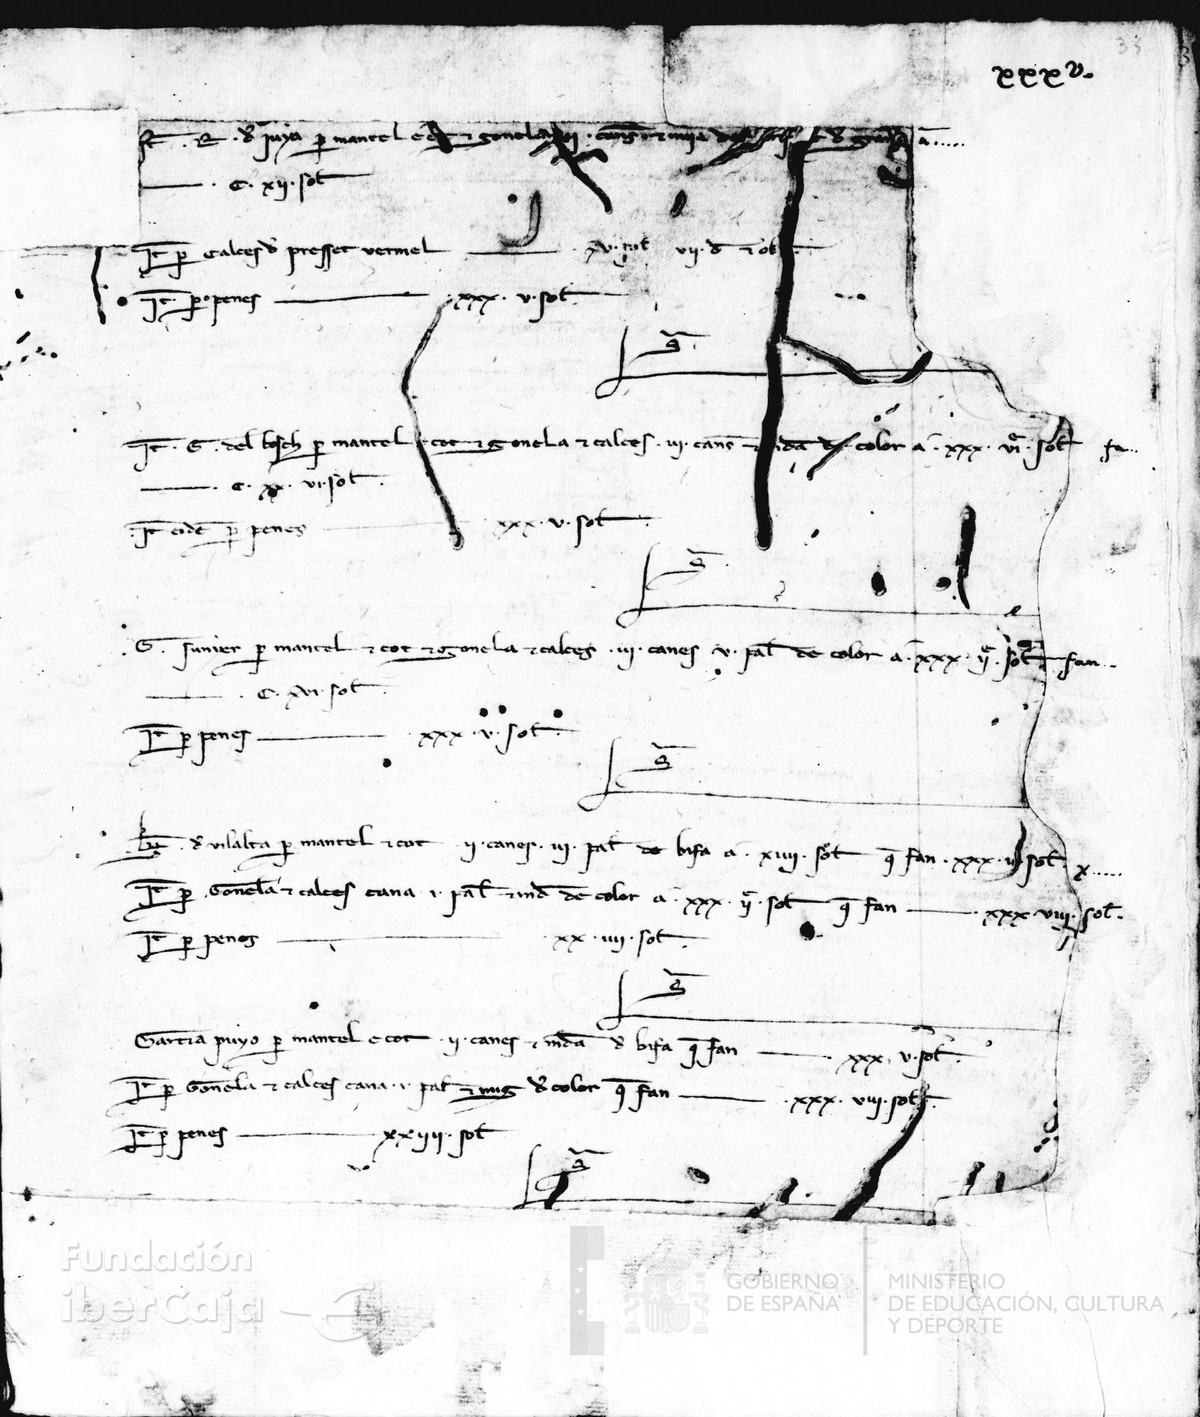 35
xxxv.
It. R. d juya p mantel e cot e gonela
c. xii. sol
It p calces d presset vermel xv. sol vii. d e ob
It p penes xxx. v. sol.
It. G. del bosch p mantel e cot e gonela e calces. iii. canes color a. xxx. vi. sol
c. xx. vi. sol.
It eide p penes xxx. v. sol
G. Juner p mantel e cot e gonela e calces. iii. canes v. pal de color a. xxx. ii. sol fan..
c. xvi. sol.
It p penes xxx. v. sol.
d vilalta p mantel e cot ii. canes. iii. pal de bifa a xiiii. sol q fan. xxx. sol
It p Gonela e calces cana i. pal e md de color a. xxx. ii. sol q fan xxx. viii. sol.
It p penes xx. iiii. sol.
Garcia puyo p mantel e cot ii. canes e mda d bifa q fan xxx. v. sol.
It p Gonela e calces cana. i. pal e mig d color q fan xxx. viii. sol.
It p penes xxiiii. sol
Fundación
iberCaja
GOBIERNO
DE ESPAÑA
MINISTERIO
DE EDUCACIÓN, CULTURA
Y DEPORTE